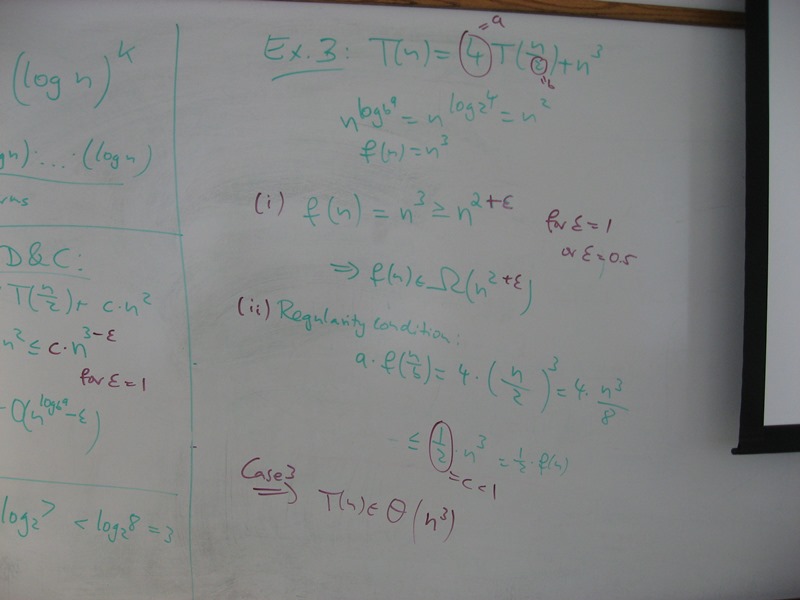 (log n)^k
gn)·...·(log n)
rms
D&C:
T(n/2) + c·n^2
n^2 ≤ c·n^{3-ε}
for ε=1
O(n^{log_b a - ε})
log_2 7 < log_2 8 = 3
Ex. 3: T(n) = 4 T(n/2) + n^3
=a
=b
n^{log_b a} = n^{log_2 4} = n^2
f(n) = n^3
(i) f(n) = n^3 ≥ n^{2+ε} for ε=1
or ε=0.5
⇒ f(n) ∈ Ω(n^{2+ε})
(ii) Regularity condition:
a·f(n/b) = 4·(n/2)^3 = 4·n^3/8
≤ 1/2·n^3 = 1/2·f(n)
=c<1
Case 3
⇒ T(n) ∈ Θ(n^3)